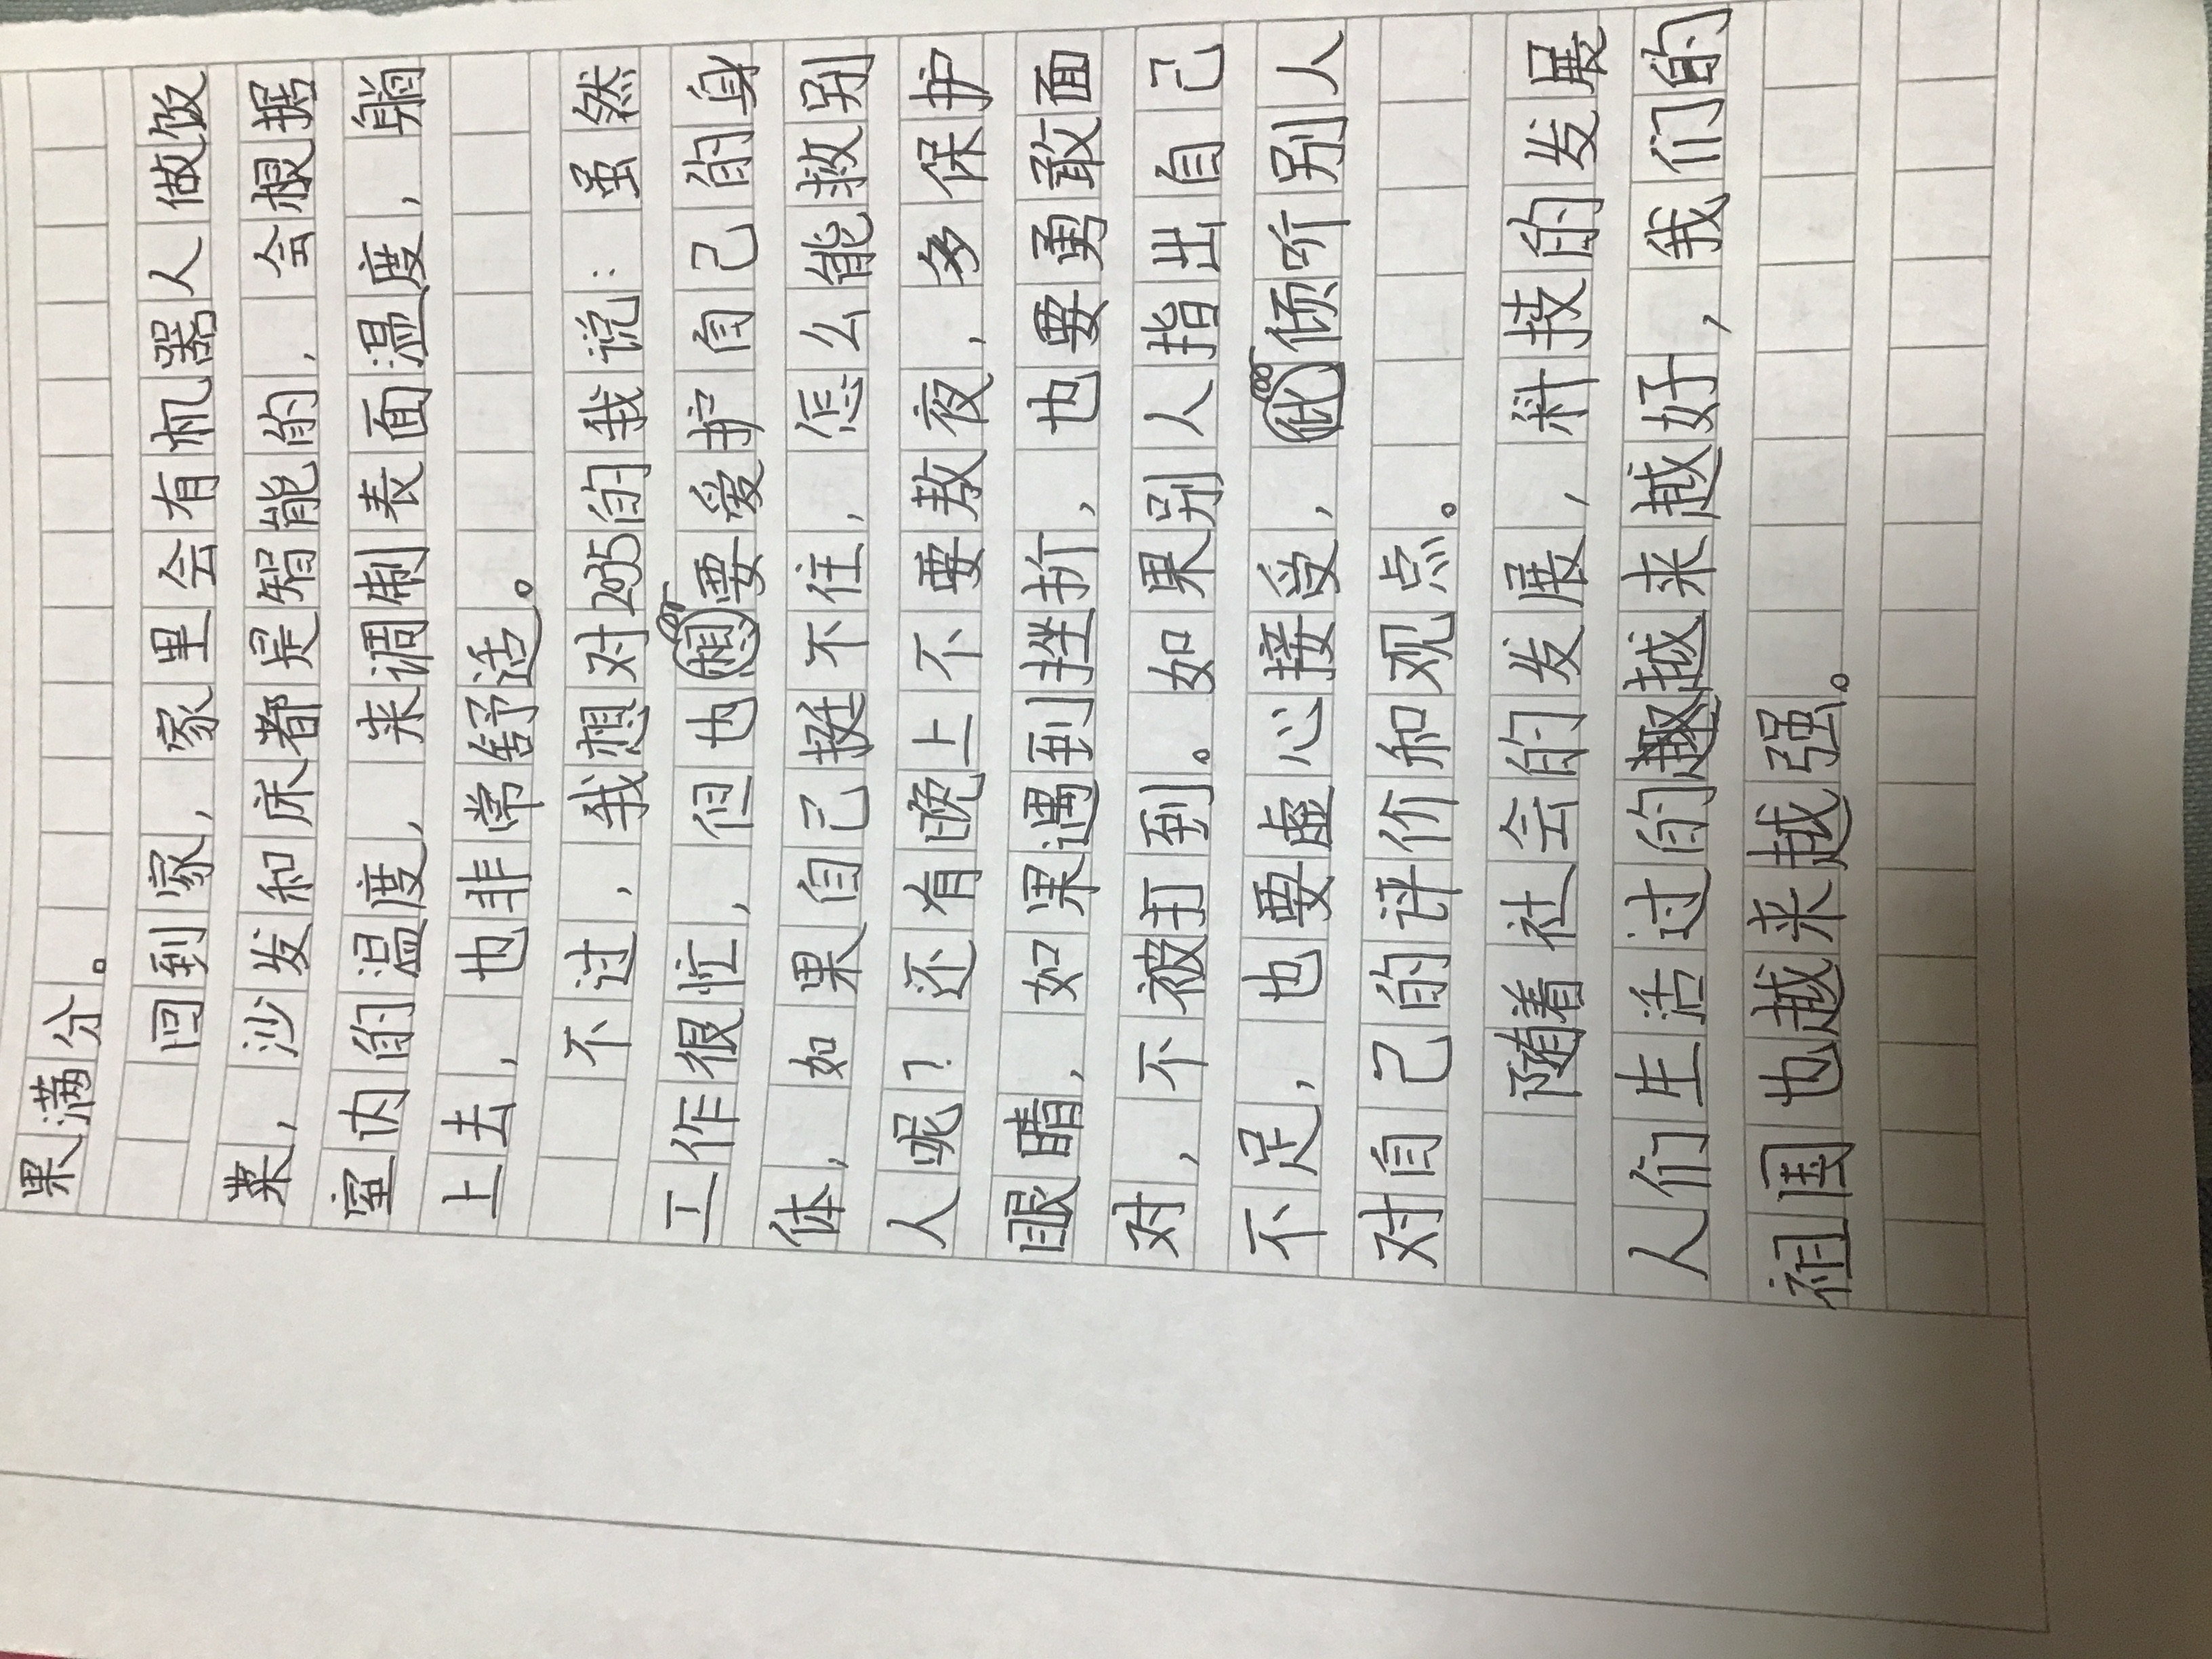 果满分。
回到家，家里会有机器人做饭
菜，沙发和床都是智能的，会根据
室内的温度，来调制表面温度，躺
上去，也非常舒适。
不过，我想对2035的我说：虽然
工作很忙，但也要爱护自己的身
体，如果自己挺不住，怎么能救别
人呢？还有晚上不要熬夜，多保护
眼睛，如果遇到挫折，也要勇敢面
对，不被打到。如果别人指出自己
不足，也要虚心接受，倾听别人
对自己的评价和观点。
随着社会的发展，科技的发展
人们生活过的越越来越好，我们的
祖国也越来越强。